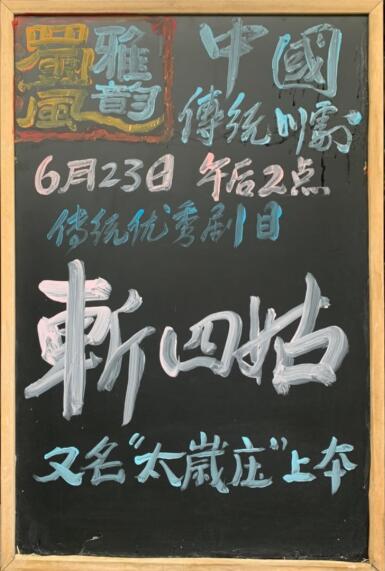 蜀風雅韵
中國
傳統川劇
6月23日 午后2点
传统优秀剧目
斬四姑
又名“太歲庄”上本